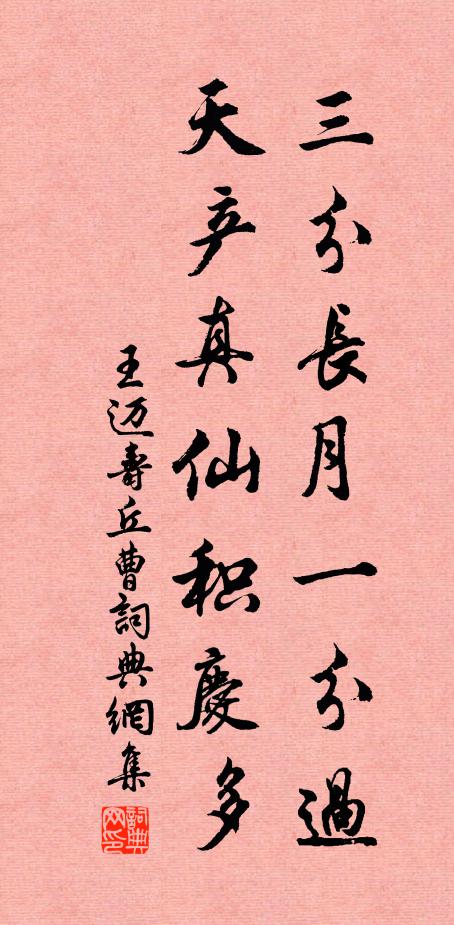 三分長月一分過
天产真仙积慶多
王迈壽丘曹詞典網集
詞典网印